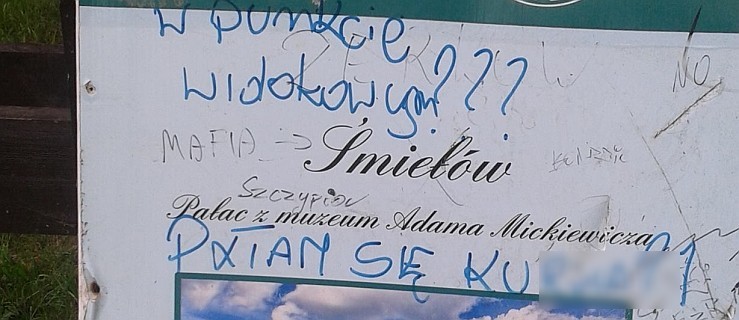 w punkcie
widokowym???
NO
MAFIA -> Śmiełów
Szczypior
Pałac z muzeum Adama Mickiewicza
PYTAM SIĘ KU